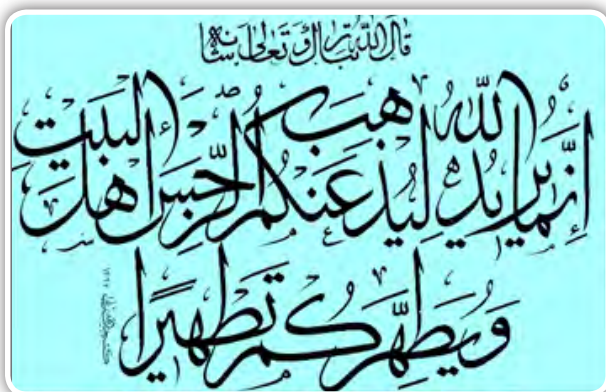 قال الله تبارك وتعالى شانه
إنما يريد الله ليذهب عنكم الرجس أهل البيت
ويطهركم تطهيرا